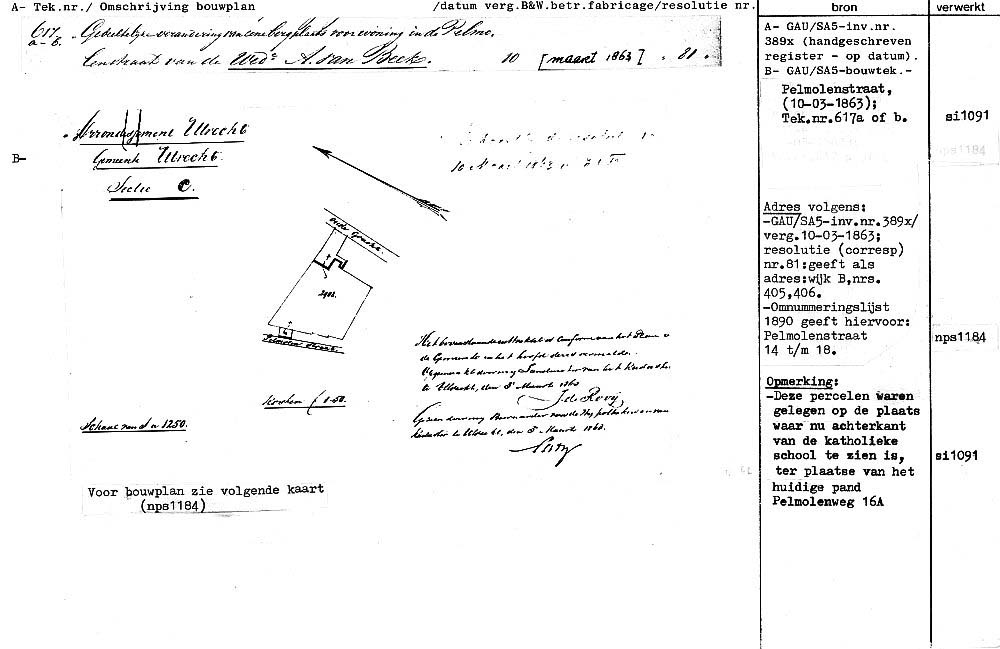 A- Tek.nr./ Omschrijving bouwplan /datum verg.B&W.betr.fabricage/resolutie nr.
bron
verwerkt
617
a-b. Gedeeltelijke verandering van eene bergplaats voor woning in de Pelmo-
lenstraat van de Wede A. van Beek. 10 [maart 1863] . 81 .
A- GAU/SA5-inv.nr.
389x (handgeschreven
register - op datum).
B- GAU/SA5-bouwtek.-
Pelmolenstraat,
(10-03-1863);
Tek.nr.617a of b.
si1091
nps1184
B-
Arrondissement Utrecht
Gemeente Utrecht.
Sectie C.
10 Maart 1863
Oude Gracht.
Pelmolen Straat.
Adres volgens:
-GAU/SA5-inv.nr.389x/
verg.10-03-1863;
resolutie (corresp)
nr.81:geeft als
adres:wijk B,nrs.
405,406.
-Omnummeringslijst
1890 geeft hiervoor:
Pelmolenstraat
14 t/m 18.
nps1184
Het bovenstaande conform aan het Plan
de Gemeente in het hoofd dezes vermeld.
Landmeter van het Kadaster
te Utrecht, den 5 Maart 1863
J. de Rooij,
Kosten f 1-50.
Gezien door mij Bewaarder van de Hypotheken en van
Kadaster te Utrecht, den 5 Maart 1863.
Schaal van 1 a 1250.
Opmerking:
-Deze percelen waren
gelegen op de plaats
waar nu achterkant
van de katholieke
school te zien is,
ter plaatse van het
huidige pand
Pelmolenweg 16A
si1091
Voor bouwplan zie volgende kaart
(nps1184)